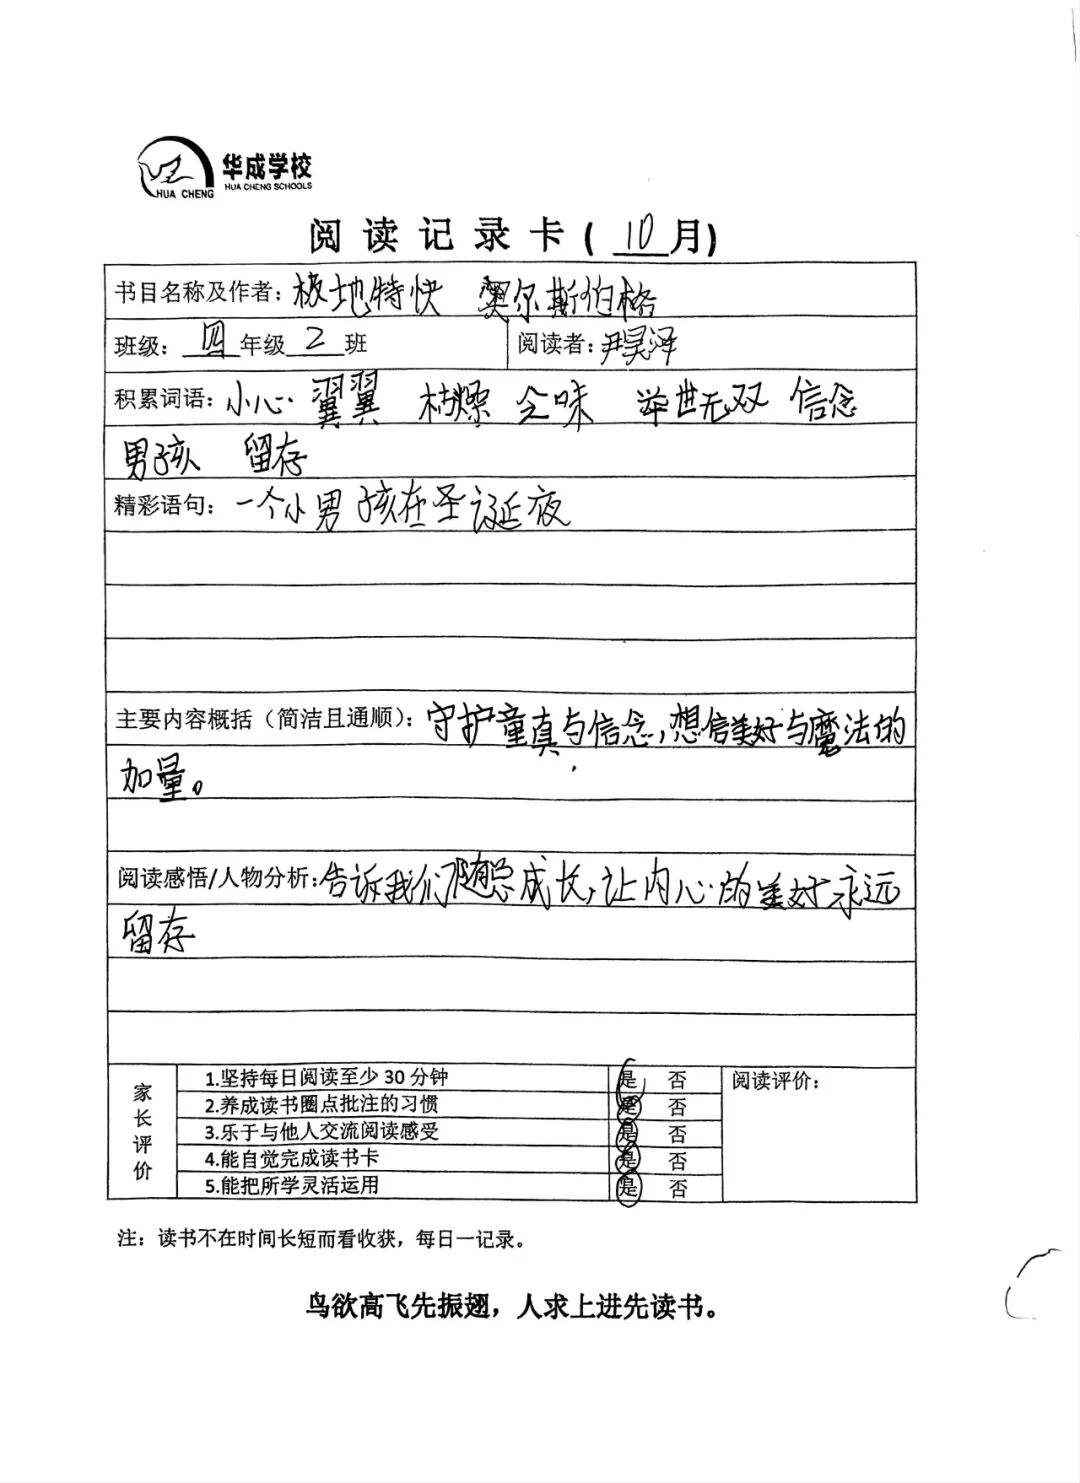 华成学校
HUA CHENG
HUA CHENG SCHOOLS
阅读记录卡(10月)
书目名称及作者:极地特快 奥尔斯伯格
班级:四年级2班 阅读者:尹昊泽
积累词语:小心翼翼 枯燥 乏味 举世无双 信念
男孩 留存
精彩语句:一个小男孩在圣诞夜
主要内容概括(简洁且通顺):守护童真与信念,想信美好与魔法的
加量。
阅读感悟/人物分析:告诉我们随总成长,让内心的美好永远
留存
家长评价
1.坚持每日阅读至少30分钟 是 否 阅读评价:
2.养成读书圈点批注的习惯 是 否
3.乐于与他人交流阅读感受 是 否
4.能自觉完成读书卡 是 否
5.能把所学灵活运用 是 否
注:读书不在时间长短而看收获,每日一记录。
鸟欲高飞先振翅,人求上进先读书。